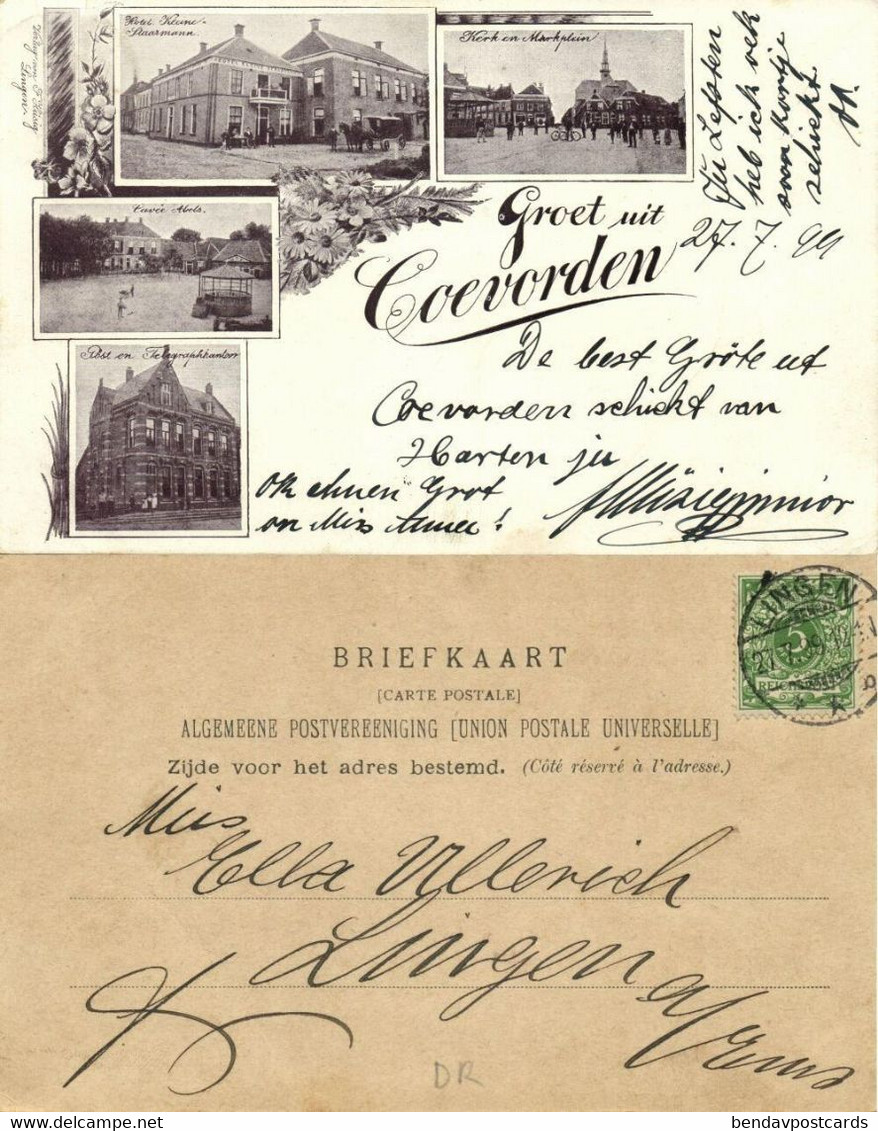 Hotel Kleine-
Staarmann.
Kerk en Marktplein
Cavée Abels.
Post en Telegraphkantoor
Lingen
Groet uit
Coevorden
heb ick
schickt
27. 7. 99
De best Gröte ut
Coevorden schickt van
Harten ju
Ok ehnen Grot
on Miss
BRIEFKAART
[CARTE POSTALE]
ALGEMEENE POSTVEREENIGING [UNION POSTALE UNIVERSELLE]
Zijde voor het adres bestemd. (Côté réservé à l'adresse.)
LINGEN
27.7.99
5
Miss
Ella Ullerich
Lingen
a/Ems
DR
delcampe.net
bendavpostcards